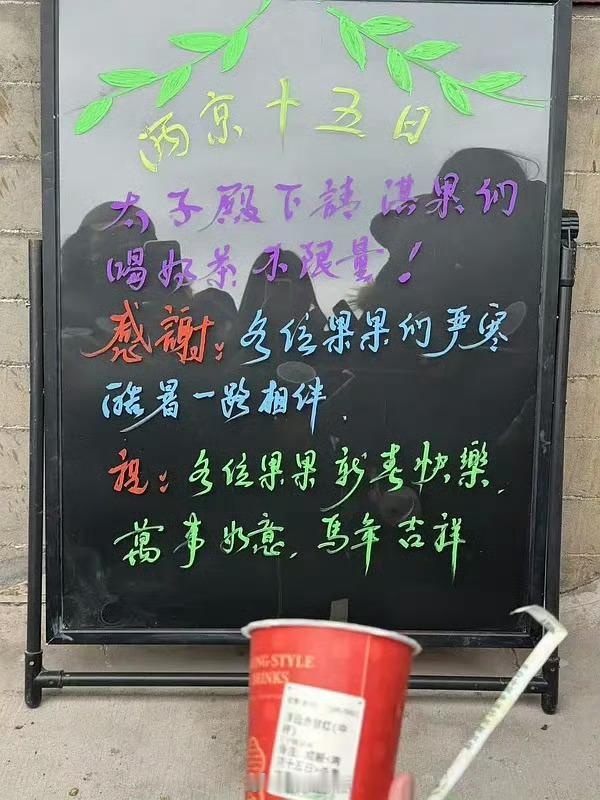 两京十五日
太子殿下請淇果们
喝奶茶不限量！
感謝：各位果果们严寒
酷暑一路相伴.
祝：各位果果新春快樂.
萬事如意.馬年吉祥
NG-STYLE
DRINKS